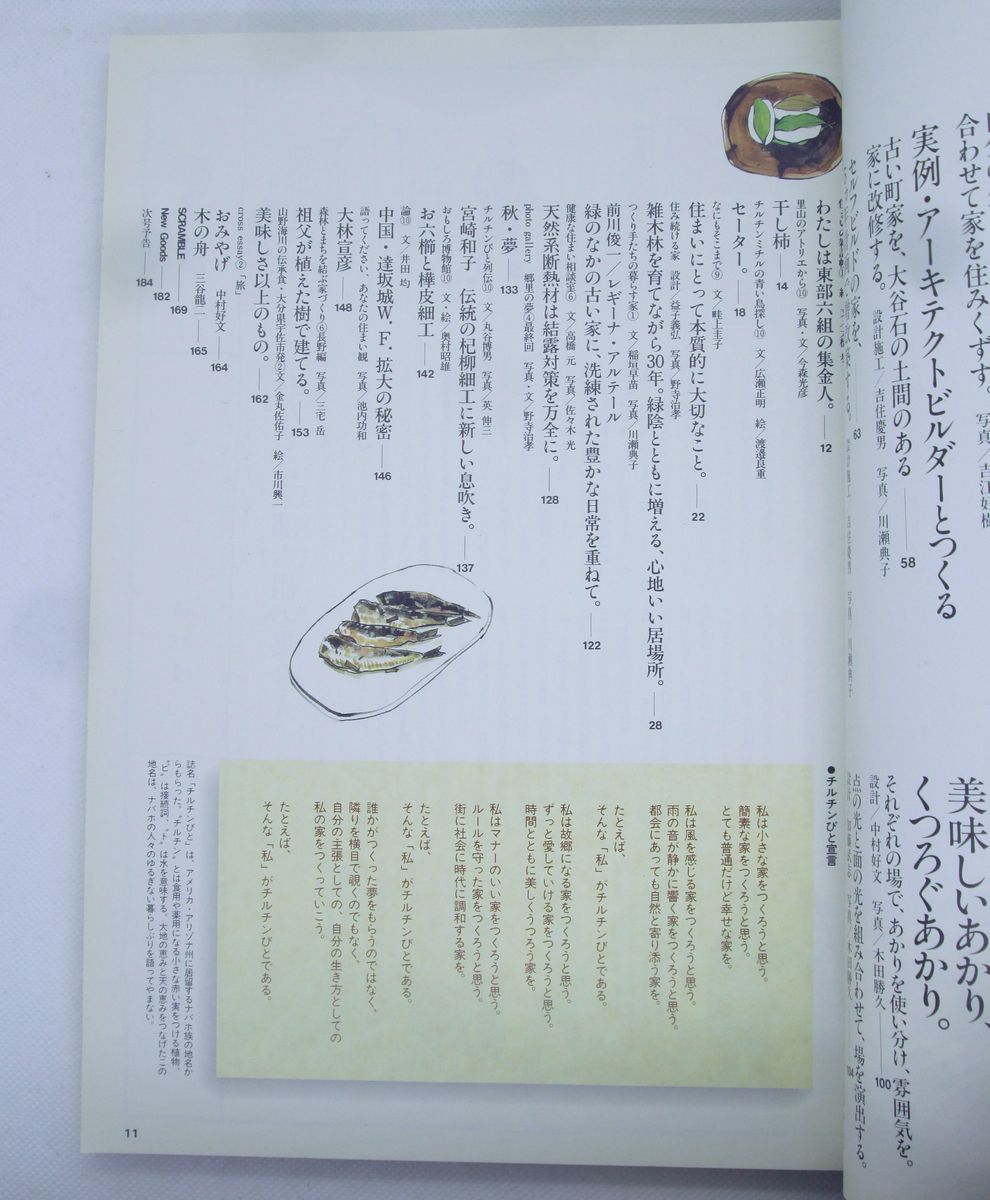 合わせて家を住みくずす。 写真／吉江好樹
実例・アーキテクトビルダーとつくる
古い町家を、大谷石の土間のある
家に改修する。 設計施工／吉住慶男 写真／川瀬典子
58
セルフビルドの家を、
63
美味しいあかり、
くつろぐあかり。
それぞれの場で、あかりを使い分け、雰囲気を。
設計／中村好文 写真／木田勝久
100
点の光と面の光を組み合わせて、場を演出する。
104
わたしは東部六組の集金人。 12
里山のアトリエから⑩ 写真・文／今森光彦
干し柿 14
チルチンミチルの青い鳥探し⑩ 文／広瀬正明 絵／渡邉良重
セーター。 18
なにもそこまで⑨ 文／畦上圭子
住まいにとって本質的に大切なこと。 22
住み続ける家 設計／益子義弘 写真／野寺治孝
雑木林を育てながら30年。緑陰とともに増える、心地いい居場所。 28
つくり手たちの暮らす家① 文／稲垣早苗 写真／川瀬典子
前川俊一／レギーナ・アルテール
緑のなかの古い家に、洗練された豊かな日常を重ねて。 122
健康な住まい相談室⑥ 文／高橋 元 写真／佐々木 光
天然系断熱材は結露対策を万全に。 128
photo gallery 郷里の夢④最終回 写真・文／野寺治孝
秋・夢 133
チルチンびと列伝⑩ 文／丸谷博男 写真／英 伸三
宮崎和子 伝統の杞柳細工に新しい息吹き。 137
おもしろ博物館⑩ 文・絵／奥村昭雄
お六櫛と樺皮細工 142
論⑩ 文／井田 均
中国・達坂城W.F.拡大の秘密 146
語ってください、あなたの住まい観 写真／池内功和
大林宣彦 148
森林とまちを結ぶ家づくり⑥長野編 写真／三宅 岳
祖父が植えた樹で建てる。 153
山野海川の伝承食・大分県宇佐市発②文／金丸佐佑子 絵／市川興一
美味しさ以上のもの。 162
cross essay②「旅」
おみやげ 中村好文 164
木の舟 三谷龍二 165
SCRAMBLE 169
New Goods 182
次号予告 184
●チルチンびと宣言
私は小さな家をつくろうと思う。
簡素な家をつくろうと思う。
とても普通だけど幸せな家を。
私は風を感じる家をつくろうと思う。
雨の音が静かに響く家をつくろうと思う。
都会にあっても自然と寄り添う家を。
たとえば、
そんな「私」がチルチンびとである。
私は故郷になる家をつくろうと思う。
ずっと愛していける家をつくろうと思う。
時間とともに美しくうつろう家を。
私はマナーのいい家をつくろうと思う。
ルールを守った家をつくろうと思う。
街に社会に時代に調和する家を。
たとえば、
そんな「私」がチルチンびとである。
誰かがつくった夢をもらうのではなく、
隣りを横目で覗くのでもなく、
自分の主張としての、自分の生き方としての
私の家をつくっていこう。
たとえば、
そんな「私」がチルチンびとである。
誌名「チルチンびと」は、アメリカ・アリゾナ州に居留するナバホ族の地名か
らもらった。〝チルチン〟とは食用や薬用になる小さな赤い実をつける植物、
〝ビ〟は接続詞、〝ト〟は水を意味する。大地の恵みと天の恵みをつなげたこの
地名は、ナバホの人々のゆるぎない暮らしぶりを語ってやまない。
11